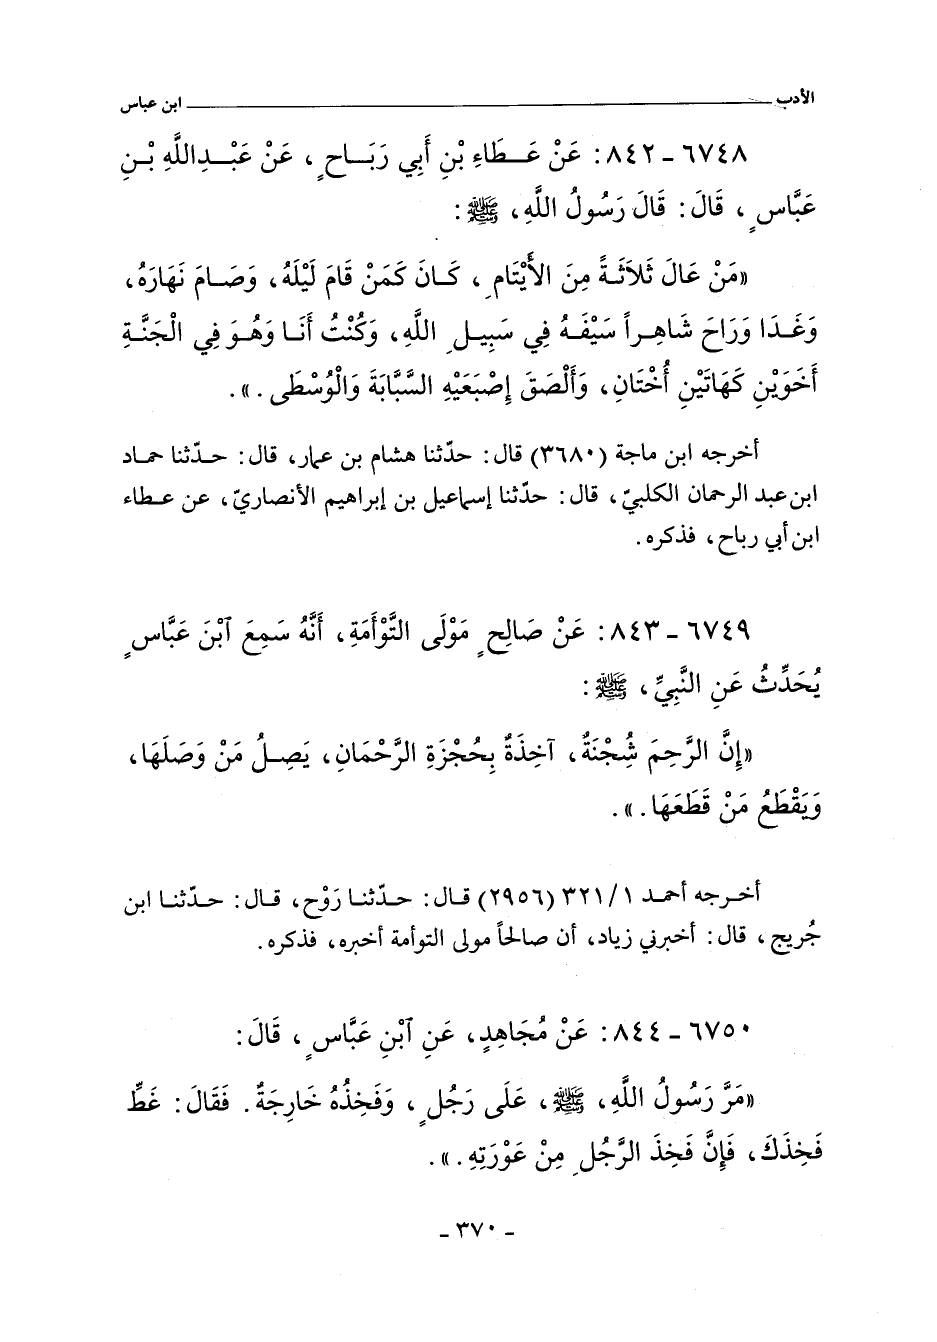 الأدب ــــــ ابن عباس
٦٧٤٨ - ٨٤٢: عَنْ عَطَاءِ بْنِ أَبِي رَبَاحٍ، عَنْ عَبْدِاللَّهِ بْنِ
عَبَّاسٍ، قَالَ: قَالَ رَسُولُ اللَّهِ، ﷺ:
«مَنْ عَالَ ثَلاَثَةً مِنَ الأَيْتَامِ، كَانَ كَمَنْ قَامَ لَيْلَهُ، وَصَامَ نَهَارَهُ،
وَغَدَا وَرَاحَ شَاهِراً سَيْفَهُ فِي سَبِيلِ اللَّهِ، وَكُنْتُ أَنَا وَهُوَ فِي الْجَنَّةِ
أَخَوَيْنِ كَهَاتَيْنِ أُخْتَانِ، وَأَلْصَقَ إِصْبَعَيْهِ السَّبَّابَةَ وَالْوُسْطَى.».
أخرجه ابن ماجة (٣٦٨٠) قال: حدّثنا هشام بن عمار، قال: حدّثنا حماد
ابن عبد الرحمان الكلبيّ، قال: حدّثنا إسماعيل بن إبراهيم الأنصاريّ، عن عطاء
ابن أبي رباح، فذكره.
٦٧٤٩ - ٨٤٣: عَنْ صَالِحٍ مَوْلَى التَّوْأَمَةِ، أَنَّهُ سَمِعَ ٱبْنَ عَبَّاسٍ
يُحَدِّثُ عَنِ النَّبِيِّ، ﷺ:
«إِنَّ الرَّحِمَ شُجْنَةٌ، آخِذَةٌ بِحُجْزَةِ الرَّحْمَانِ، يَصِلُ مَنْ وَصَلَهَا،
وَيَقْطَعُ مَنْ قَطَعَهَا.».
أخرجه أحمد ١/ ٣٢١ (٢٩٥٦) قال: حدّثنا رَوْح، قال: حدّثنا ابن
جُريج، قال: أخبرني زياد، أن صالحاً مولى التوأمة أخبره، فذكره.
٦٧٥٠ - ٨٤٤: عَنْ مُجَاهِدٍ، عَنِ ٱبْنِ عَبَّاسٍ، قَالَ:
«مَرَّ رَسُولُ اللَّهِ، ﷺ، عَلَى رَجُلٍ، وَفَخِذُهُ خَارِجَةٌ. فَقَالَ: غَطِّ
فَخِذَكَ، فَإِنَّ فَخِذَ الرَّجُلِ مِنْ عَوْرَتِهِ.».
- ٣٧٠ -